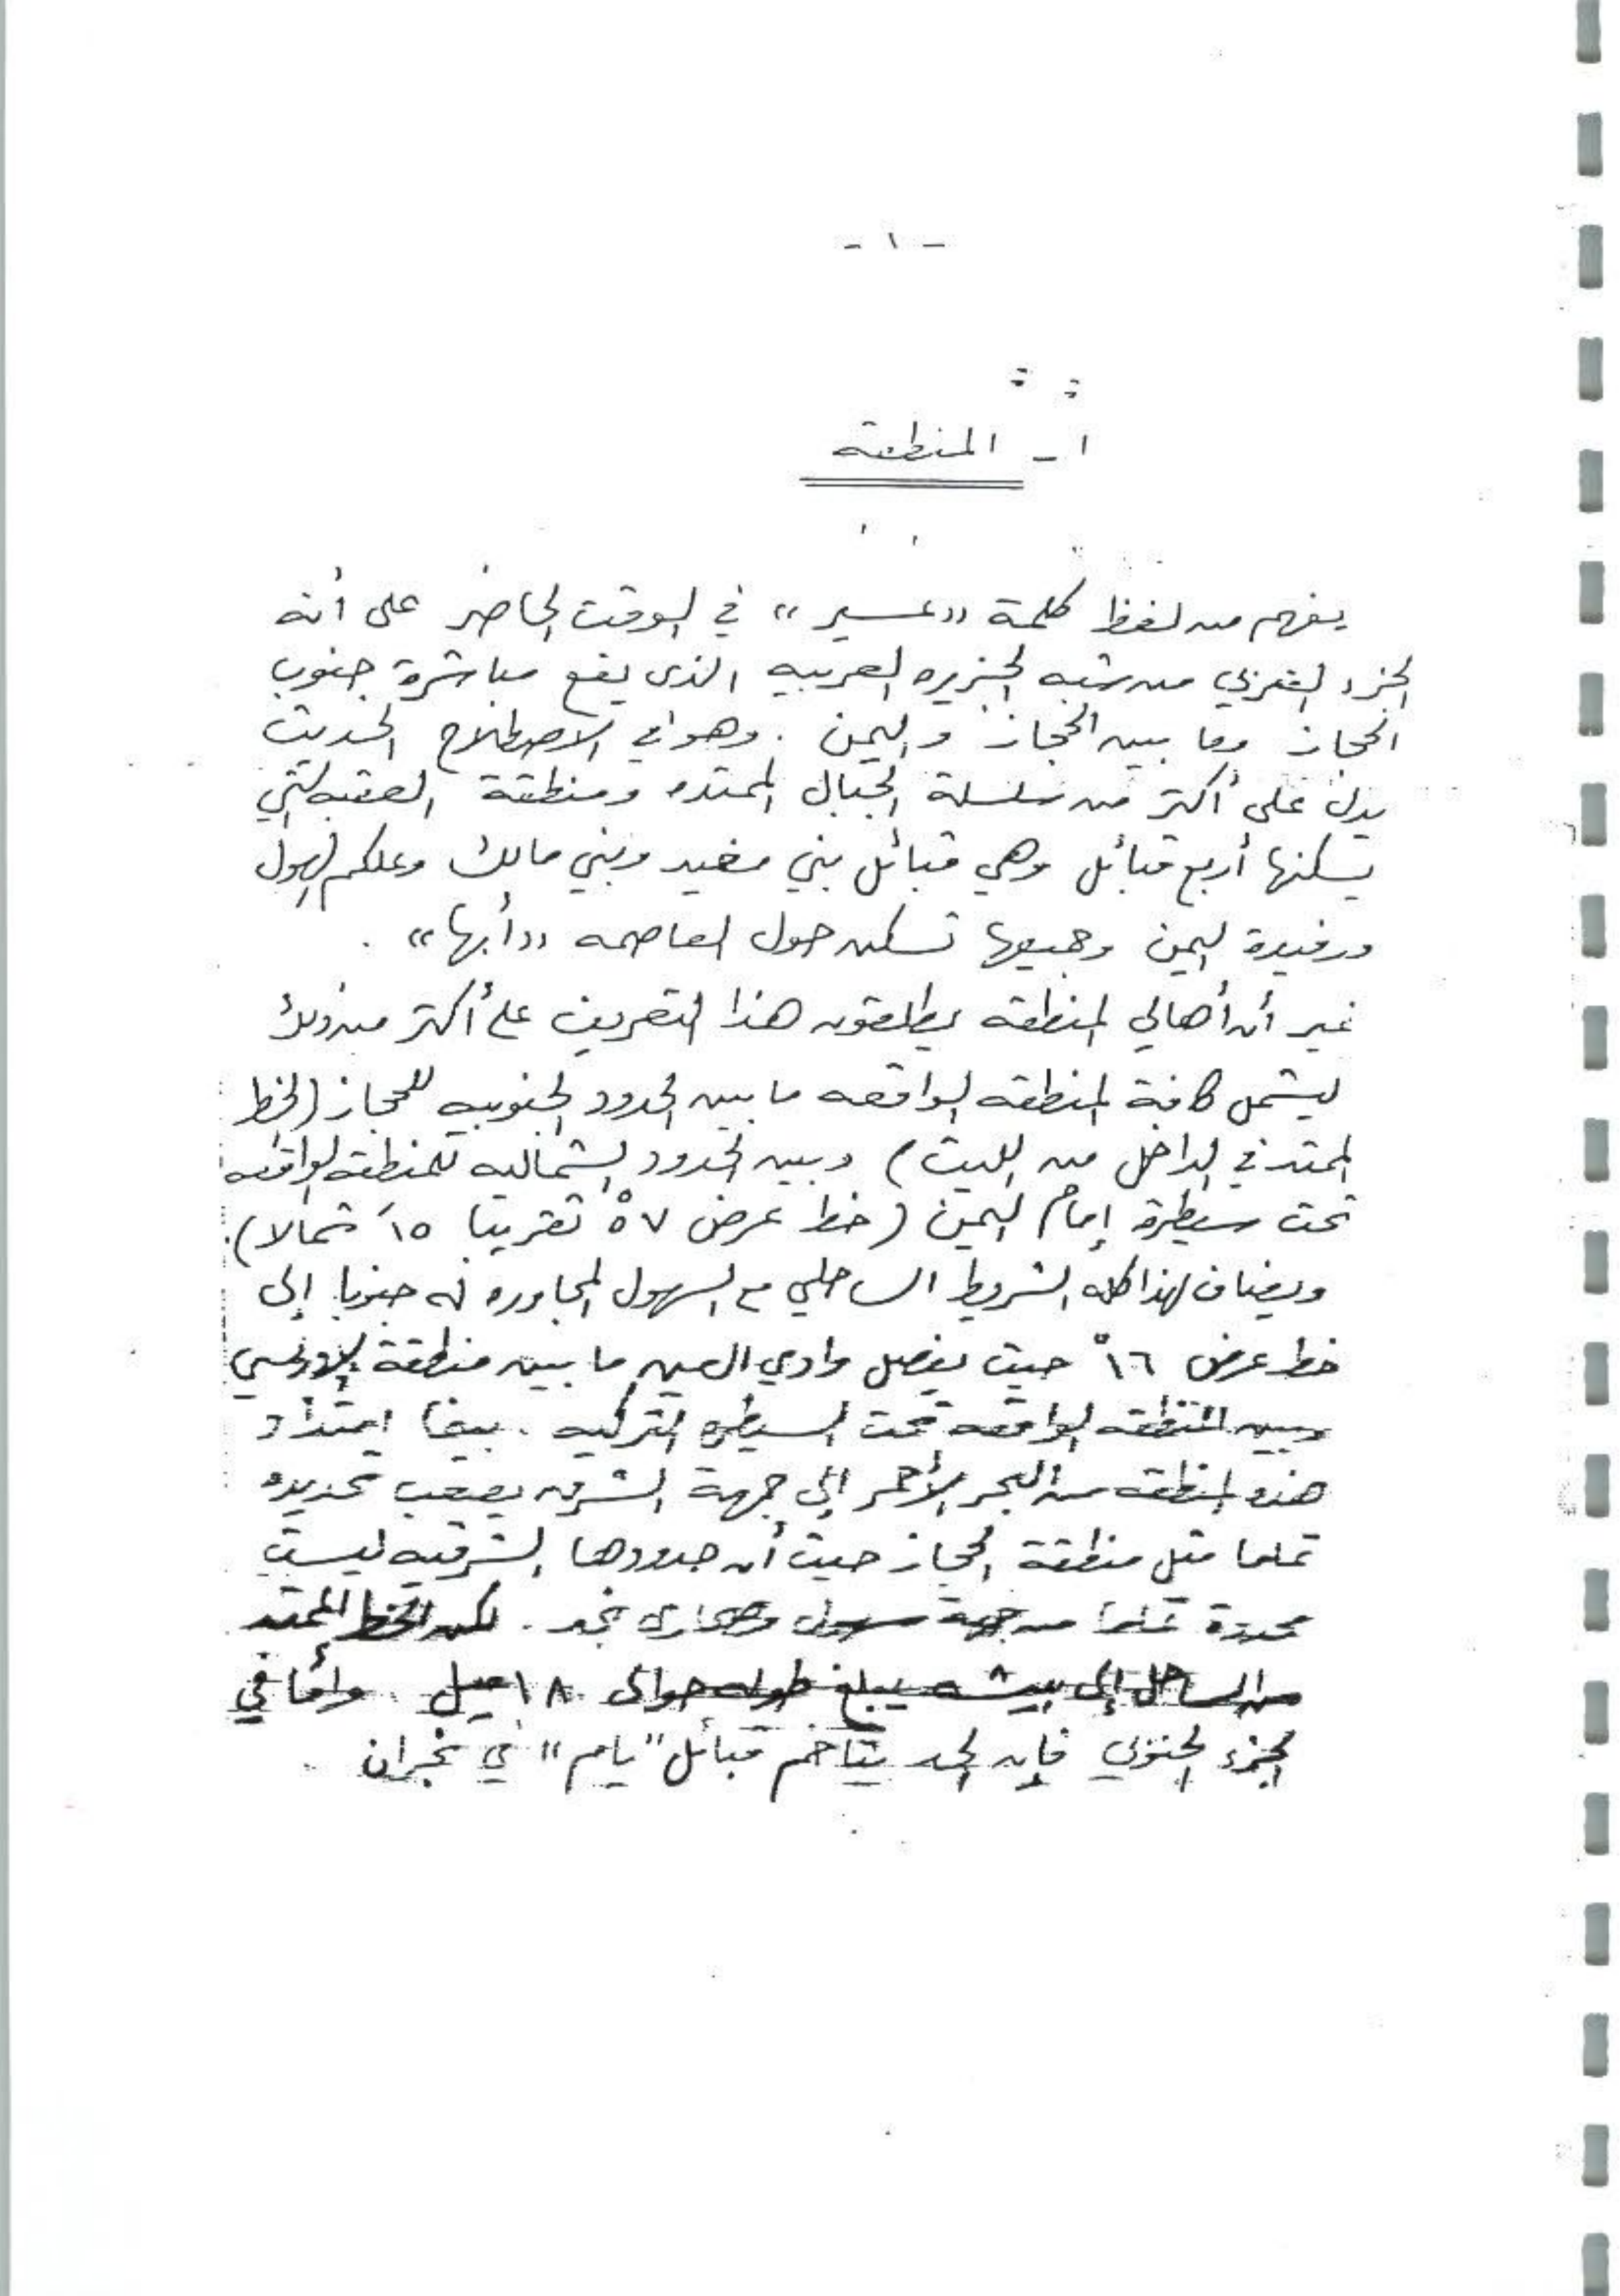 - ١ -
١ - المنطقة
يفهم من لفظ كلمة «عسير» في الوقت الحاضر على أنه
الجزء الغربي من شبه الجزيره العربيه الذى يقع مباشرة جنوب
الحجاز وما بين الحجاز واليمن . وهو في الاصطلاح الحديث
يدل على أكثر من سلسلة الجبال الممتده ومنطقة العقبه التي
يسكنها أربع قبائل وهي قبائل بني مغيد وبني مالك وعلكم الهول
ورفيدة اليمن وجميعها تسكن حول العاصمه «أبها» .
غير أن أهالي المنطقه يطلقون هذا التعريف على أكثر من ذلك
ليشمل كافة المنطقه الواقعه ما بين الحدود الجنوبيه للحجاز (الخط
الممتد في الداخل من الليث) وبين الحدود الشماليه للمنطقه الواقعه
تحت سيطرة إمام اليمن (خط عرض ٥٧ْ تقريبا ١٥َ شمالا).
ويضاف لهذا كله الشريط الساحلي مع السهول المجاوره له جنوبا إلى
خط عرض ١٦ْ حيث يفصل وادي العين ما بين منطقة الإدريسي
وبين المنطقه الواقعه تحت السيطره التركيه . بينما امتداد
هذه المنطقه من البحر الأحمر إلى جهة الشرق يصعب تحديده
تماما مثل منطقة الحجاز حيث أن حدودها الشرقيه ليست
محددة تماما من جهة سهول وصحارى نجد . لكن الخط الممتد
من الساحل إلى بيشه يبلغ طوله حوالى ١٨٠ ميل . وأما في
الجزء الجنوبي فإن الحد يتاخم قبائل "يام" في نجران .